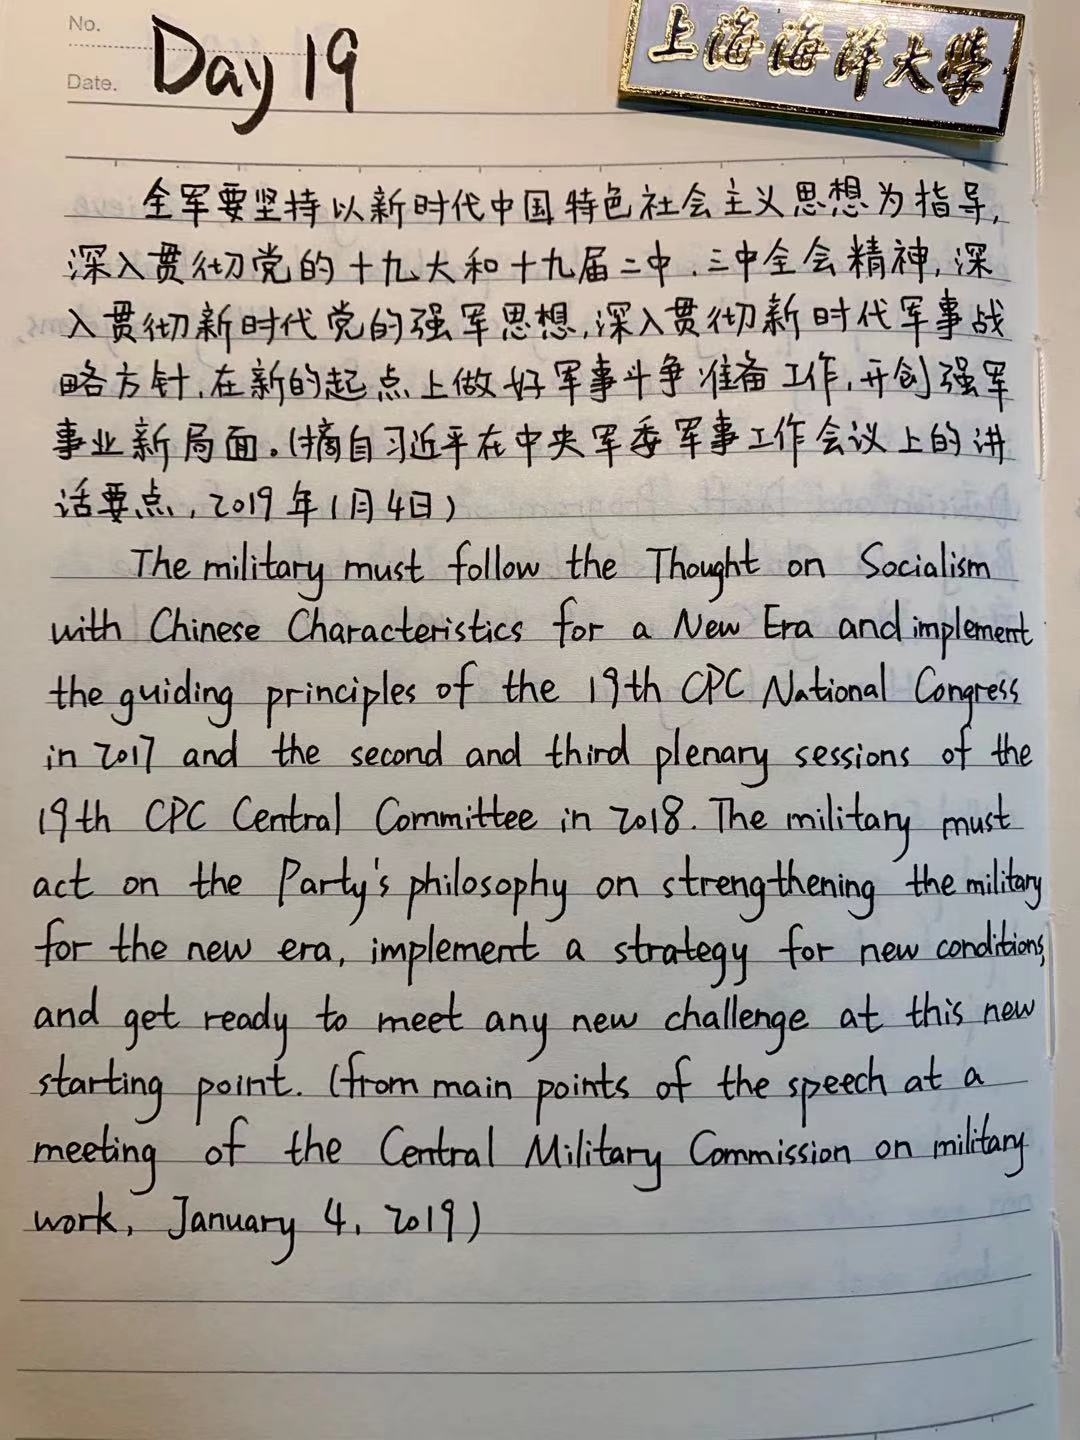 No.
Date.
Day 19
上海海洋大學
全军要坚持以新时代中国特色社会主义思想为指导,
深入贯彻党的十九大和十九届二中、三中全会精神,深
入贯彻新时代党的强军思想,深入贯彻新时代军事战
略方针,在新的起点上做好军事斗争准备工作,开创强军
事业新局面。(摘自习近平在中央军委军事工作会议上的讲
话要点,2019年1月4日)
The military must follow the Thought on Socialism
with Chinese Characteristics for a New Era and implement
the guiding principles of the 19th CPC National Congress
in 2017 and the second and third plenary sessions of the
19th CPC Central Committee in 2018. The military must
act on the Party's philosophy on strengthening the military
for the new era, implement a strategy for new conditions,
and get ready to meet any new challenge at this new
starting point. (from main points of the speech at a
meeting of the Central Military Commission on military
work, January 4, 2019)